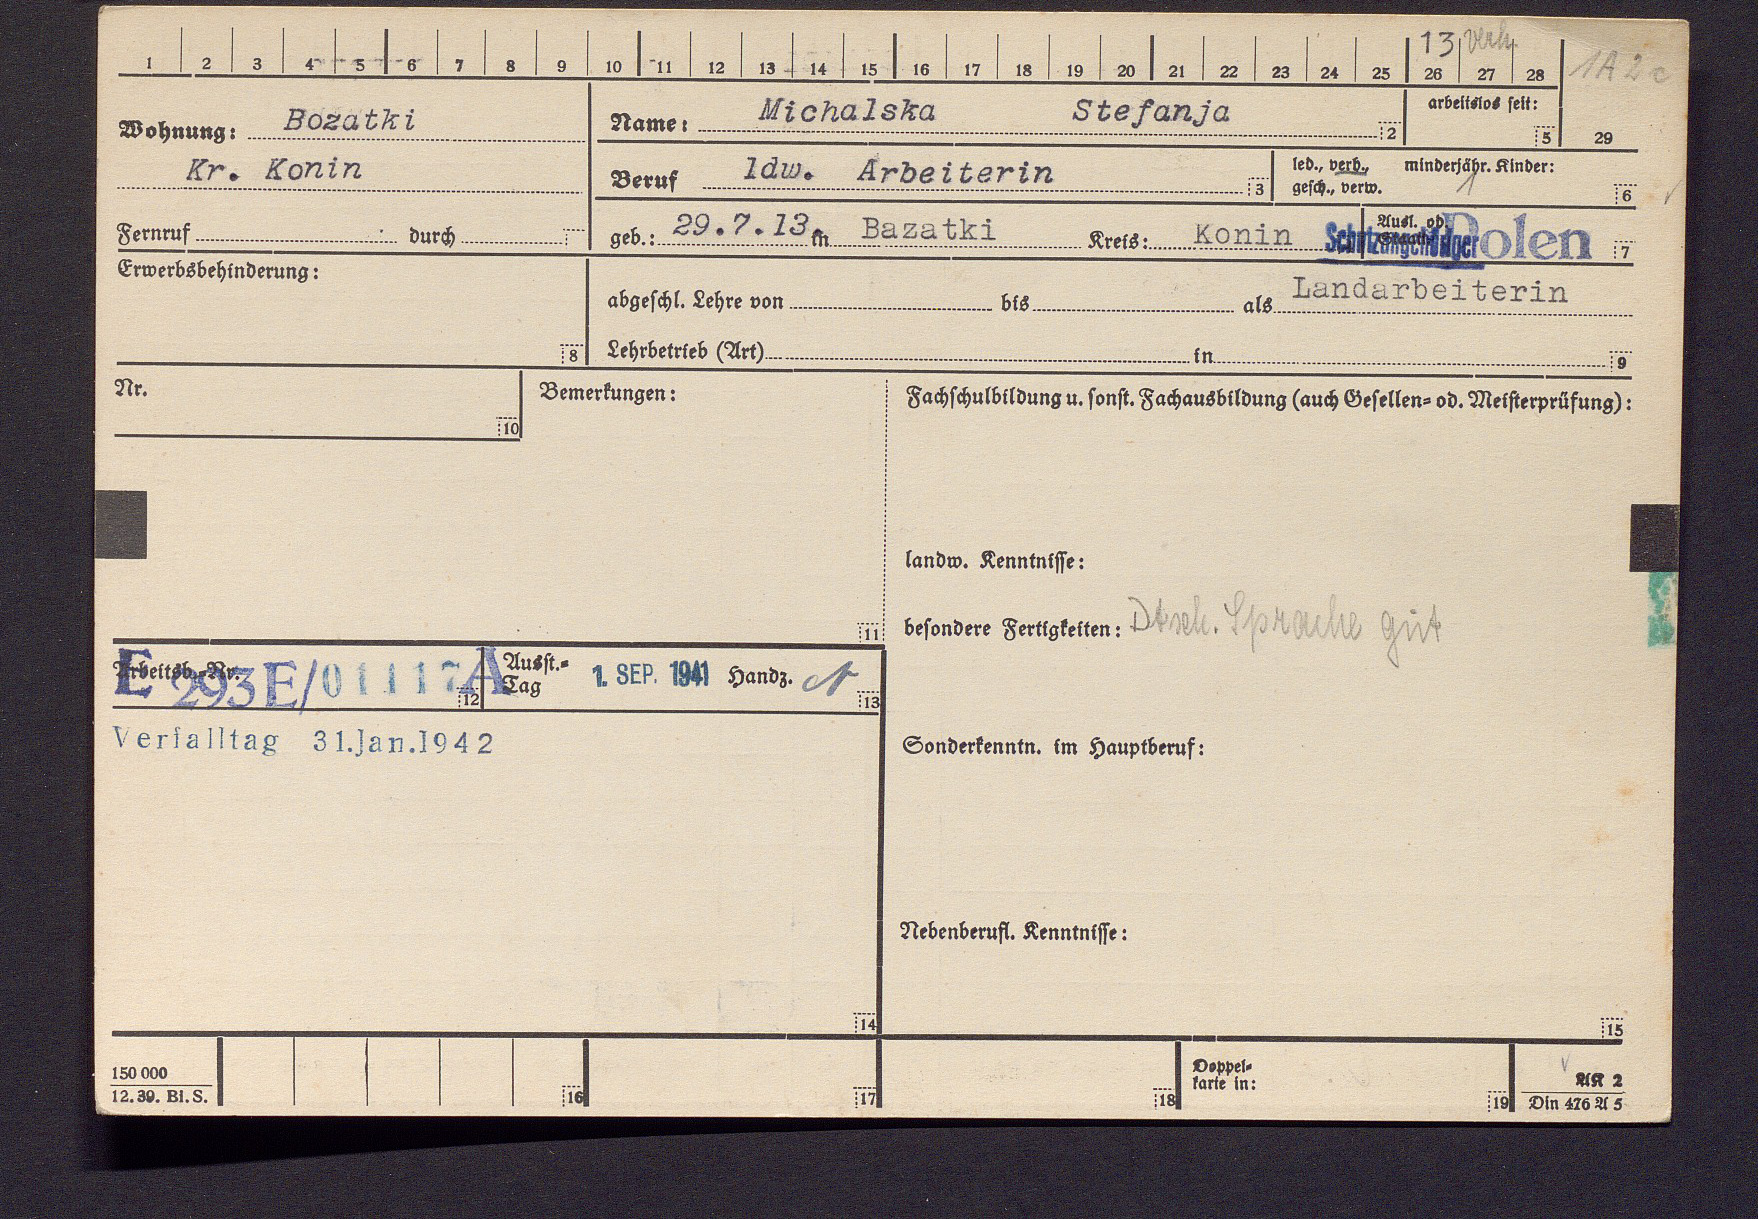 13 verh.
1 2 3 4 5 6 7 8 9 10 11 12 13 14 15 16 17 18 19 20 21 22 23 24 25 26 27 28
1A 2c
Wohnung: Bozatki
Kr. Konin
Fernruf durch
Name: Michalska Stefanja 2
arbeitslos seit: 5
29
Beruf ldw. Arbeiterin 3
led., verh., minderjähr. Kinder: 1
gesch., verw. 6
geb.: 29.7.13. in Bazatki Kreis: Konin
Ausl. od.
Schutzangehöriger Polen 7
Erwerbsbehinderung: 8
abgeschl. Lehre von bis als Landarbeiterin
Lehrbetrieb (Art) in 9
Nr. 10
Bemerkungen: 11
Fachschulbildung u. sonst. Fachausbildung (auch Gesellen= od. Meisterprüfung):
landw. Kenntnisse:
besondere Fertigkeiten: Dtsch. Sprache gut
Arbeitsb.-Nr. E 293E/01117A 12
Ausst.=
Tag 1. SEP. 1941 Handz. 13
Verfalltag 31.Jan.1942
Sonderkenntn. im Hauptberuf:
Nebenberufl. Kenntnisse:
14
15
150 000
12.39. Bl. S.
16
17
18
Doppel=
karte in: 19
AK 2
Din 476 A 5